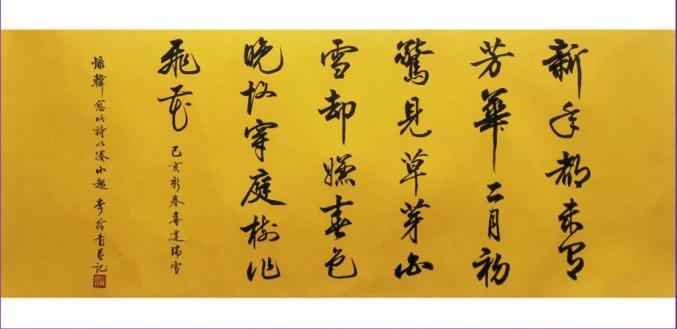 新年都未有
芳華二月初
驚見草芽白
雪却嫌春色
晚故穿庭樹作
飛花
己亥新春喜瑞雪
憶韓愈此詩以湊小趣 李書並記